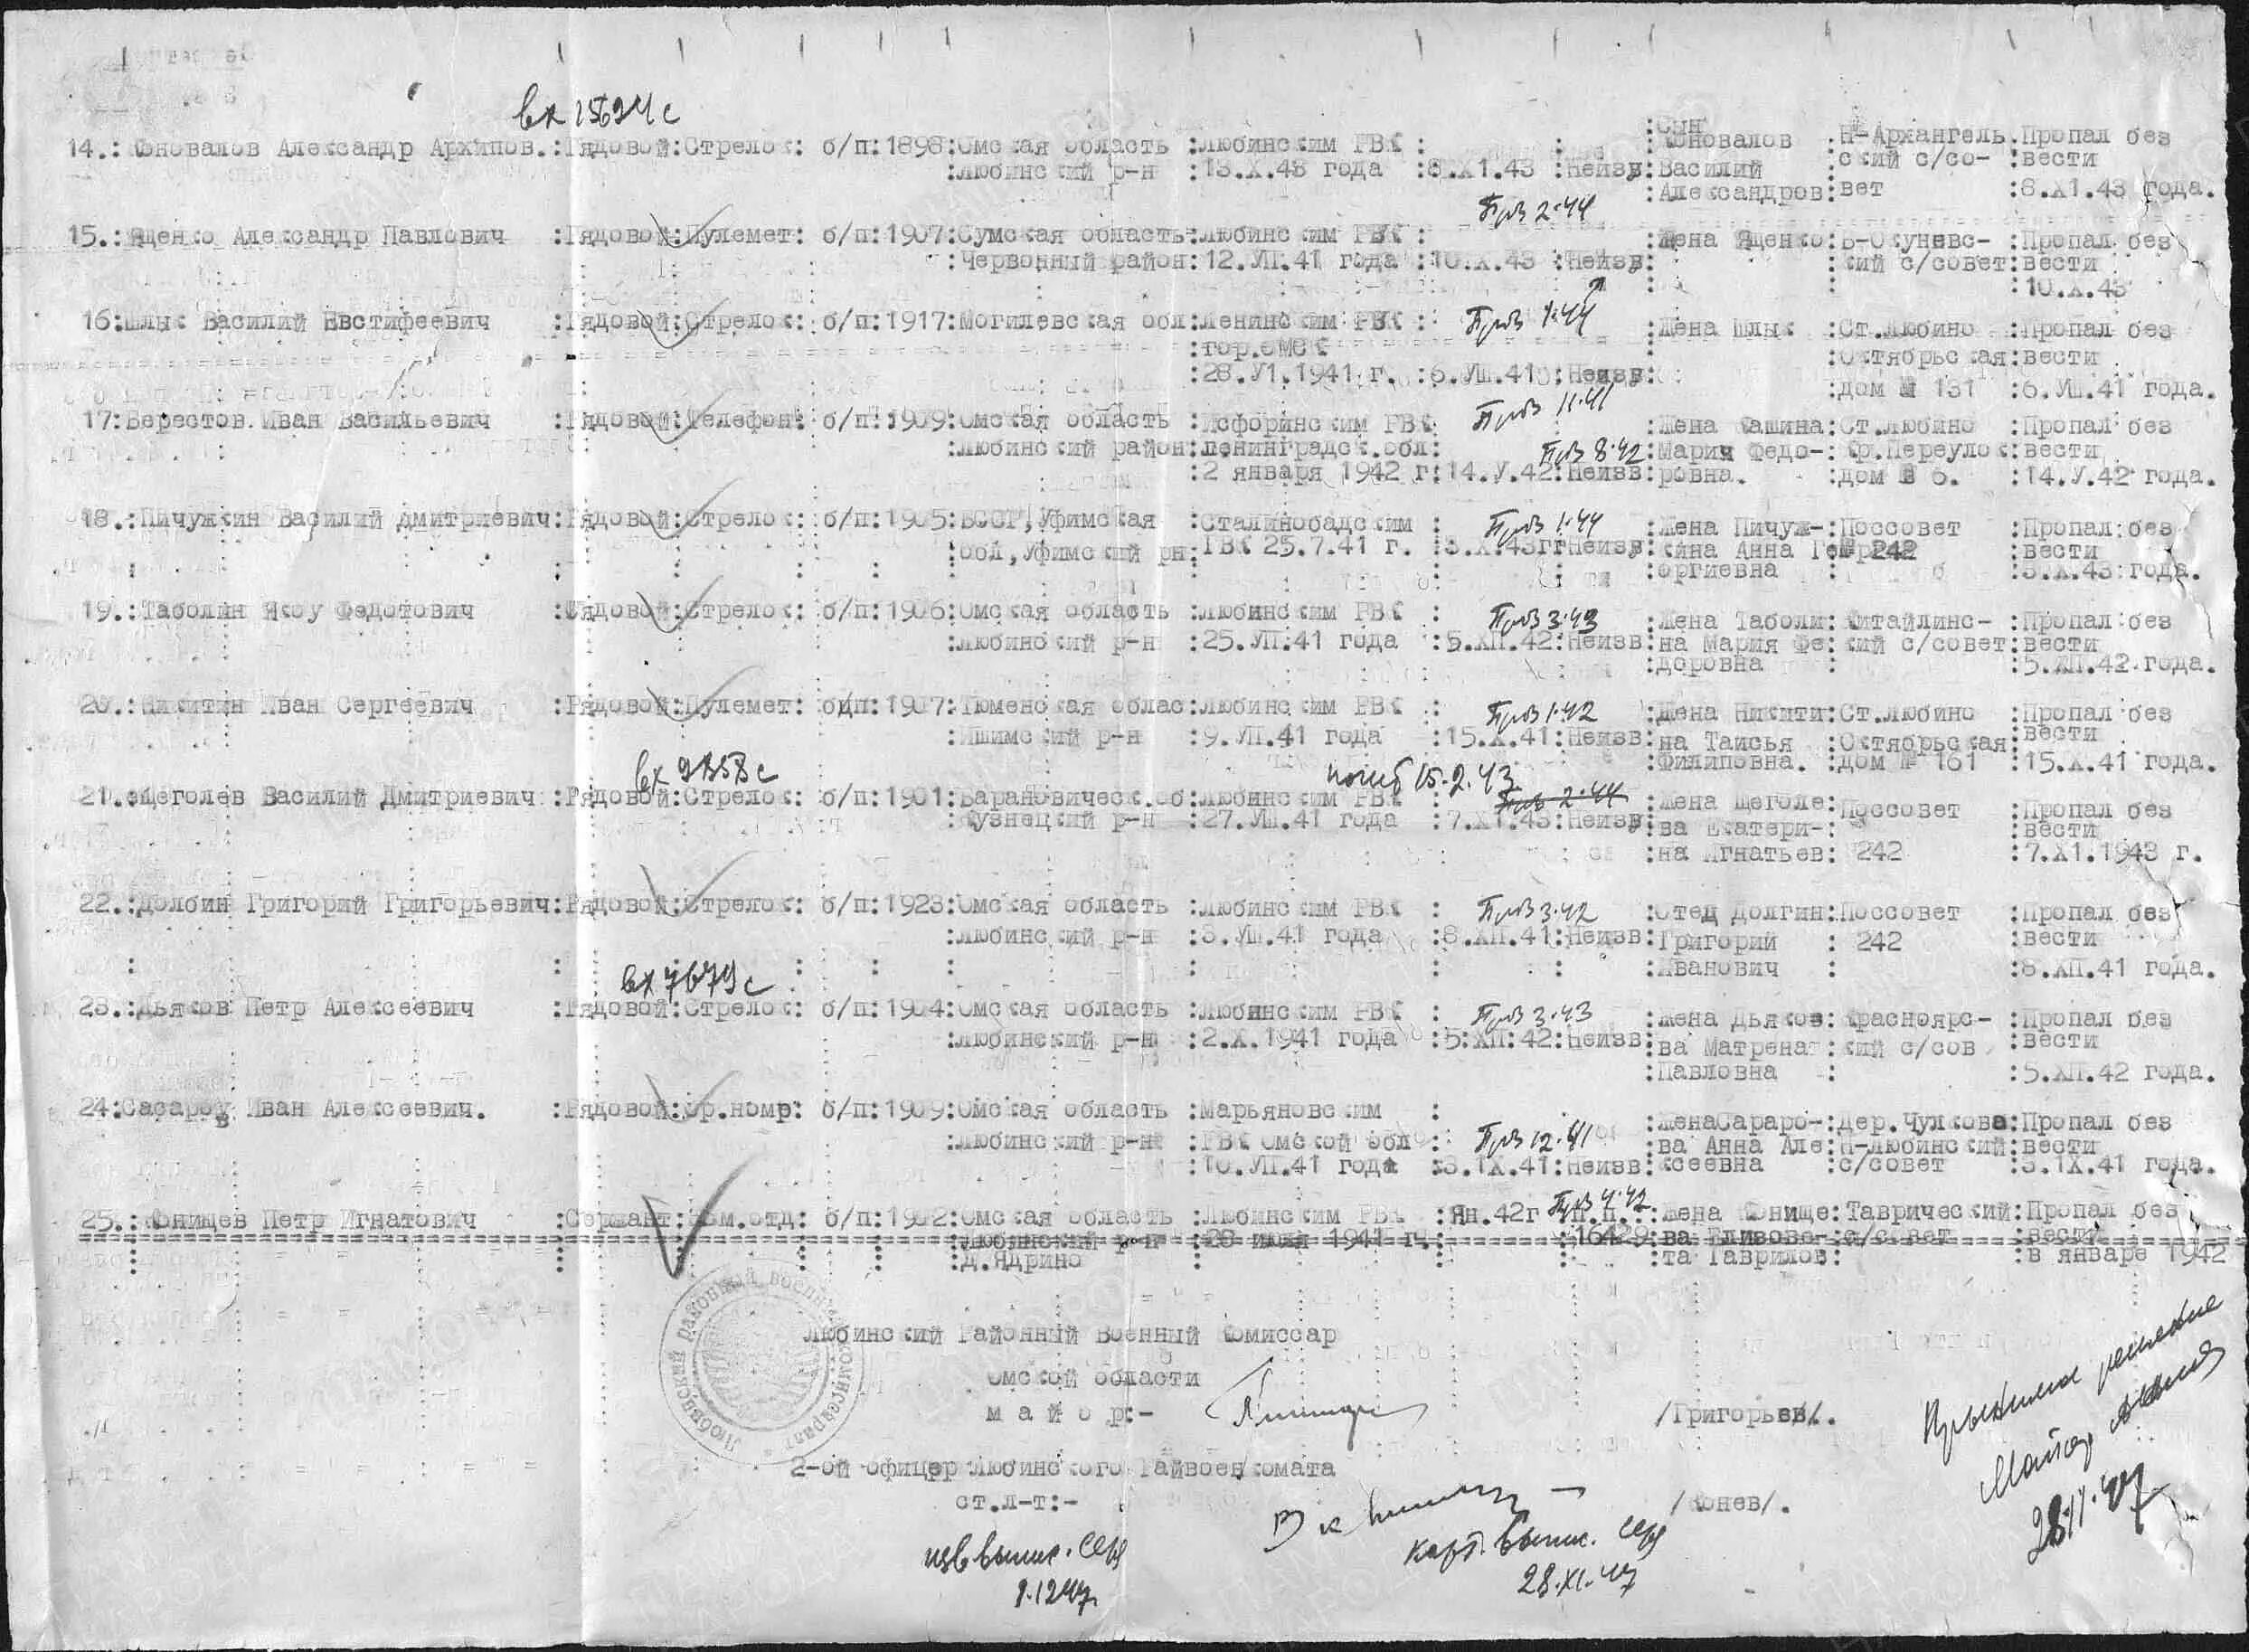 вх 15624с
14.: Коновалов Александр Архипов.:Рядовой:Стрелок: б/п:1898:Омская область :Любинским РВК : :Сын Коновалов Н-Архангель Пропал без
:Любинский р-н :13.X.43 года :8.X1.43 :Неизв:Василий ский с/со- :вести
:Александров:вет :8.X1.43 года.
Проп 2.44
15.:Ященко Александр Павлович :Рядовой:Пулемет: б/п:1907:Сумская область:Любинским РВК : :Жена Ященко:В-Окуневс- :Пропал без
:Червонный район:12.УП.41 года :10.X.43 :Неизв: :кий с/совет:вести
:10.X.43
16:Шлык Василий Евстифеевич :Рядовой:Стрелок: б/п:1917:Могилевская обл:Ленинским РВК : Проп 1.44 :Жена Шлык :Ст.Любино :Пропал без
:гор.Омск :Октябрьская:вести
:28.У1.1941 г. :6.УШ.41 :Неизв: :дом № 131 :6.УШ.41 года.
Проп 11.41
17:Берестов Иван Васильевич :Рядовой:Телефон: б/п:1909:Омская область : :Жена Кашина:Ст.Любино :Пропал без
:Любинский район:Ленинградск.обл: Проп 8.42 :Мария Федо-:Кр.Переулок:вести
:2 января 1942 г:14.У.42:Неизв:ровна. :дом № 6. :14.У.42 года.
18.:Пичужкин Василий Дмитриевич:Рядовой:Стрелок: б/п:1905:БССР,Уфимская :Сталинобадским : Проп 1.44 :Жена Пичуж-:Поссовет :Пропал без
:обл,Уфимский рн:ГВК 25.7.41 г. :3.X.43гг Неизв:кина Анна Ге 242 :вести
:оргиевна :3.X.43 года.
19.:Таболин Якоу Федотович :Рядовой:Стрелок: б/п:1906:Омская область :Любинским РВК : Проп 3.43 :Жена Таболи:Китайлинс- :Пропал без
:Любинский р-н :25.УП.41 года :5.ХП.42:Неизв:на Мария Фе:кий с/совет:вести
:доровна : :5.ХП.42.года.
20.:Никитин Иван Сергеевич :Рядовой:Пулемет: б/п:1907:Тюменская облас:Любинским РВК : Проп 1.42 :Жена Никити:Ст.Любино :Пропал без
:Ишимский р-н :9.УП.41 года :15.X.41:Неизв:на Таисья :Октябрьская:вести
:Филиповна. :дом № 161 :15.X.41 года.
вх 9858с погиб 15.2.43
21.:Щеголев Василий Дмитриевич:Рядовой:Стрелок: б/п:1901:Барановическ.об:Любинским РВК : Проп 2.44 :Жена Щеголе:Поссовет :Пропал без
:Кузнецкий р-н :27.УШ.41 года :7.X1.43:Неизв:ва Екатери-: :вести
:на Игнатьев: 242 :7.X1.1943 г.
22.:Долбин Григорий Григорьевич:Рядовой:Стрелок: б/п:1923:Омская область :Любинским РВК : Проп 3.42 :Отец Долгин:Поссовет :Пропал без
:Любинский р-н :3.УШ.41 года :8.ХП.41:Неизв:Григорий : 242 :вести
:Иванович : :8.ХП.41 года.
вх 7679с
23.:Дьяков Петр Алексеевич :Рядовой:Стрелок: б/п:1904:Омская область :Любинским РВК : Проп 3.43 :Жена Дьяков:Красноярс- :Пропал без
:Любинский р-н :2.X.1941 года :5:ХП:42:Неизв:ва Матрена :кий с/сов :вести
:Павловна : :5.ХП.42 года.
24:Сасаров Иван Алексеевич. :Рядовой:ор.номр: б/п:1909:Омская область :Марьяновским : :ЖенаСараро-:Дер.Чулкова:Пропал без
:Любинский р-н :РВК Омской обл : Проп 12.41 :ва Анна Але:Н-Любинский:вести
:10.УП.41 года :3.1X.41:Неизв:ксеевна :с/совет :3.1X.41 года.
25.:Конищев Петр Игнатович :Сержант:Ком.отд: б/п:1902:Омская область :Любинским РВК :Ян.42г Проп 4.42 :п.п.:Жена Конище:Таврический:Пропал без
:Любинский р-н :28 июля 1941 г.: :16429:ва Елизове-:с/совет :вести
:д.Ядрино : :та Гаврилов: :в январе 1942
Любинский районный военный комиссариат
Любинский Районный Военный Комиссар
Омской области
м а й о р:- /Григорьев/.
2-ой офицер Любинского Райвоенкомата
ст.л-т:- /Конев/.
Майор
28.11.47
изв выпис.
9.12.47г.
карт. выпис.
28.XI.47